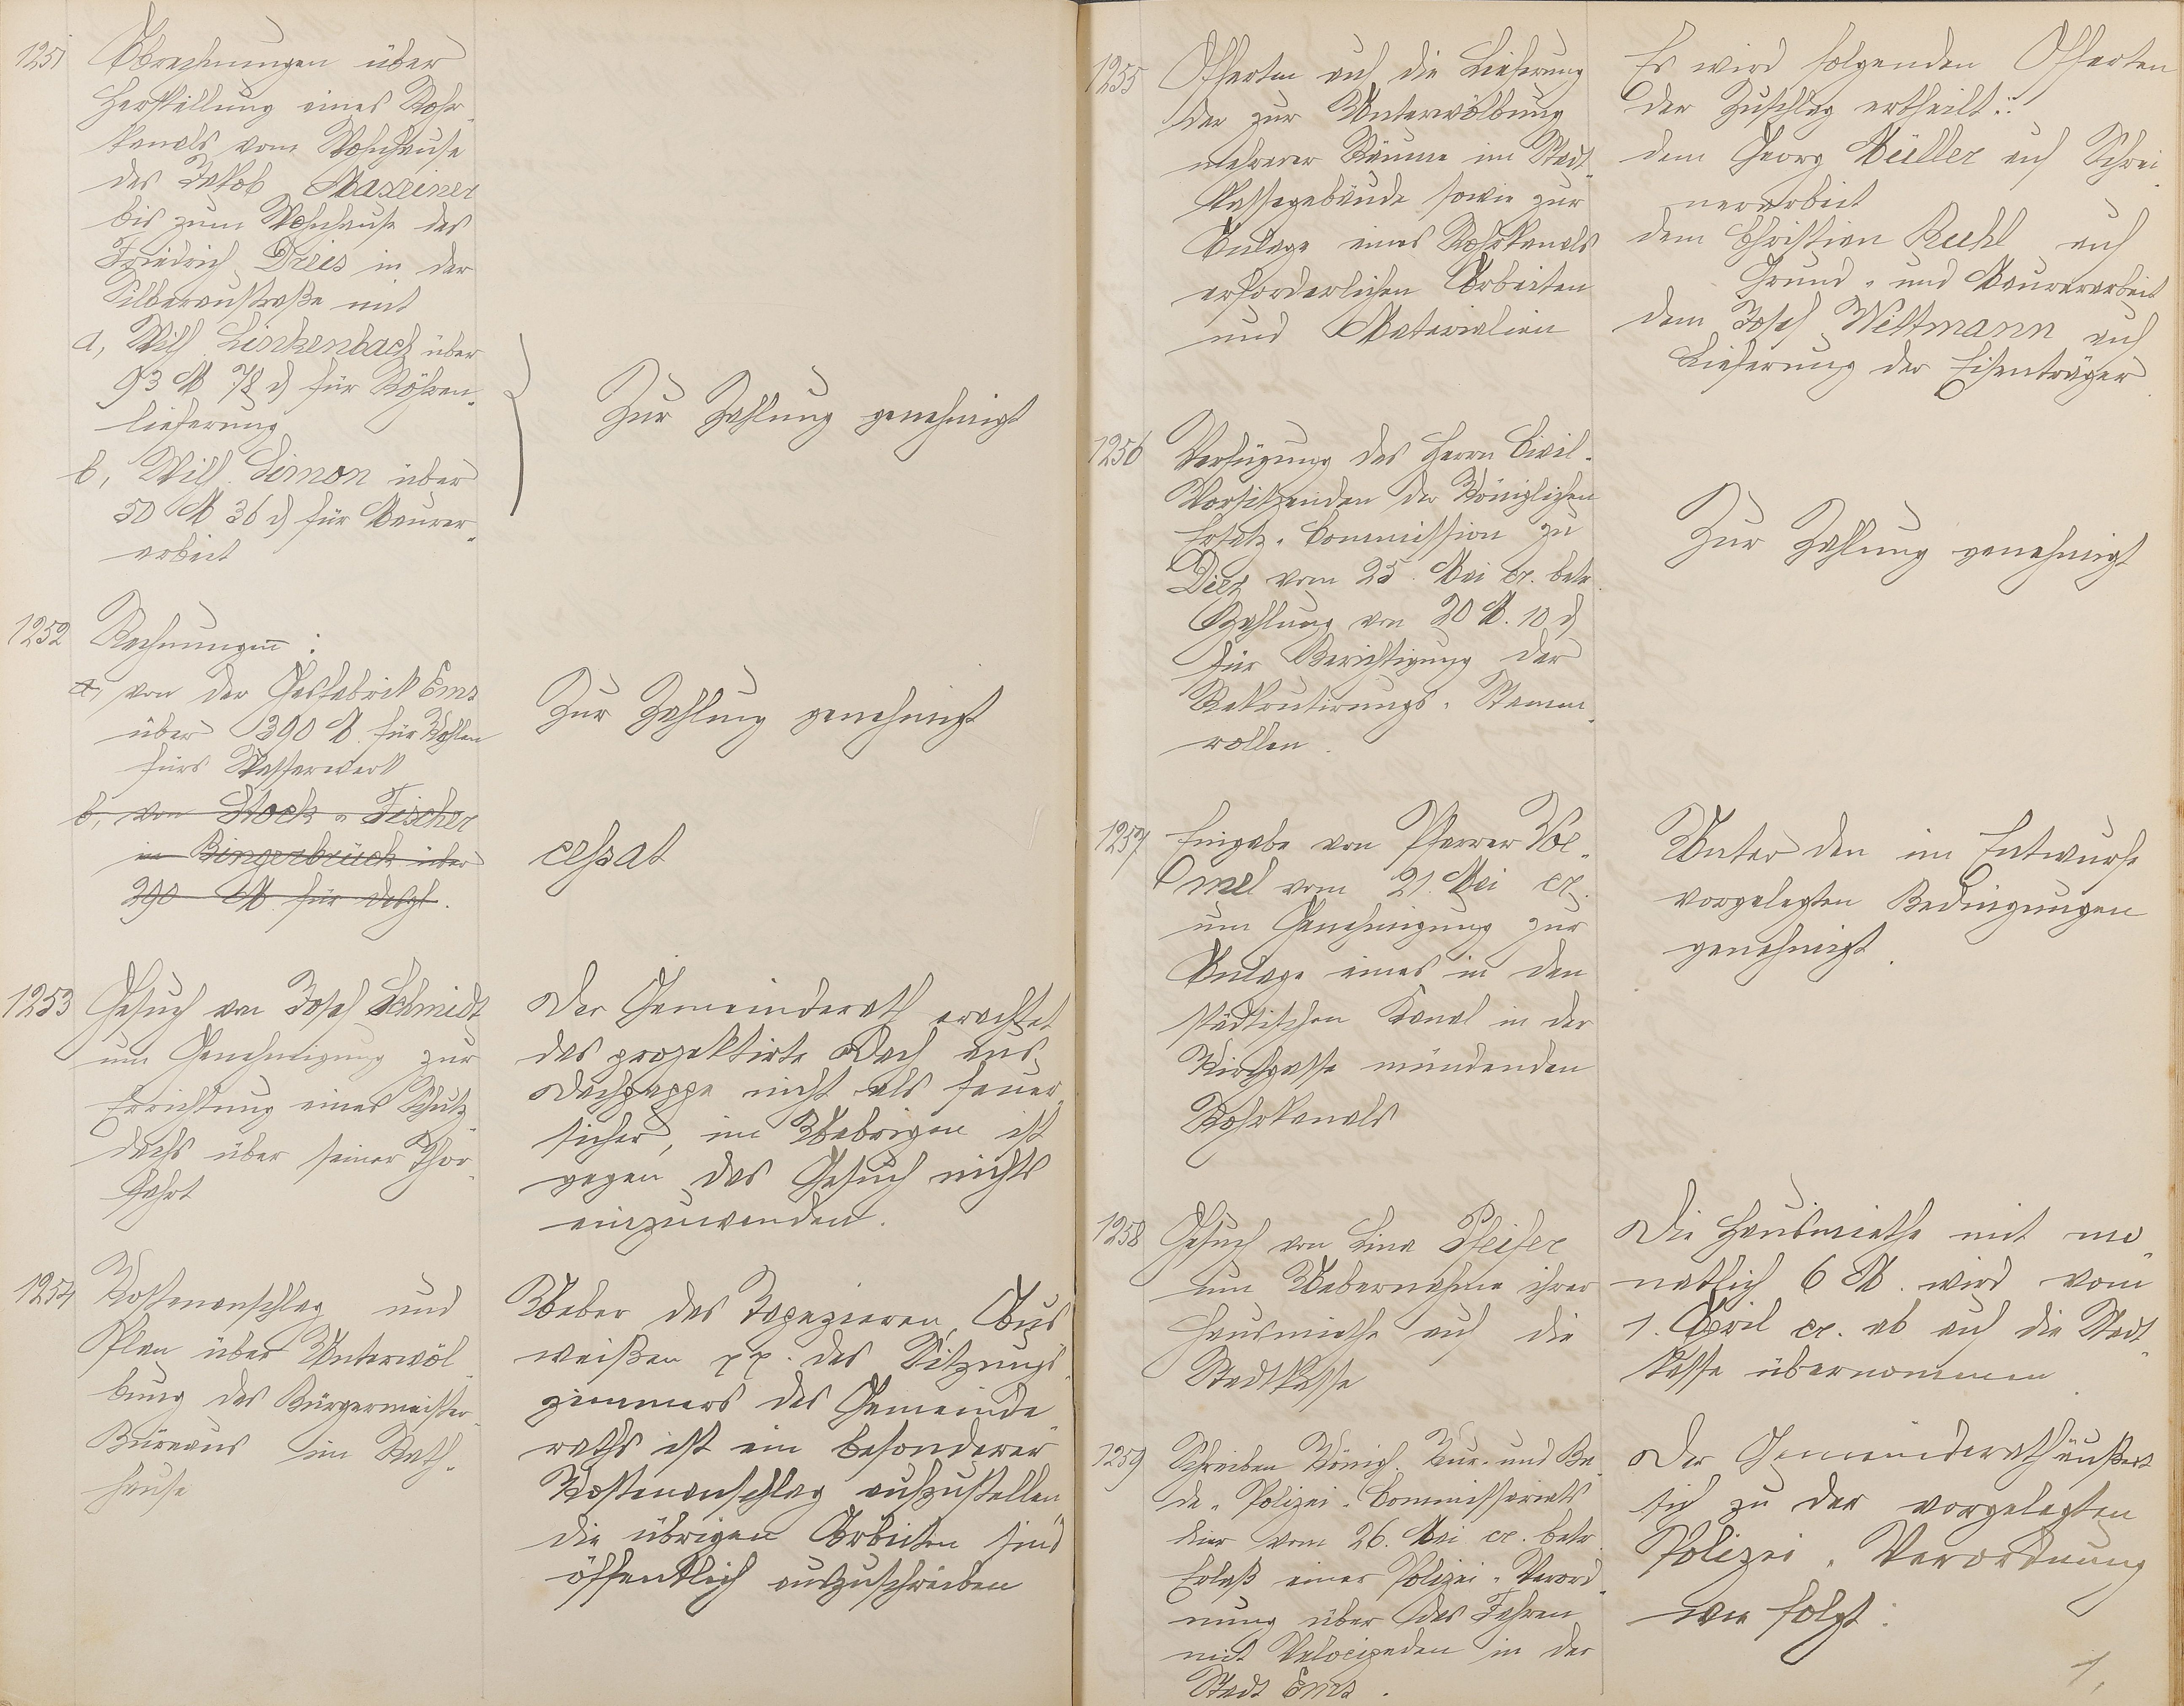 1251
Abrechnungen über
Herstellung eines Rohr-
kanals vom Wohnhause
des Jakob Maxeiner
bis zum Wohnhause des
Friedrich Dreis in der
Silberaustraße mit
a, Wilh. Linkenbach über
93 M 78 d für Röhren-
lieferung
b, Wilh. Simon über
50 M 36 d für Maurer-
arbeit
Zur Zahlung genehmigt
1252
Rechnungen:
a, von der Gasfabrik Ems
über 390 M. für Kohlen
fürs Wasserwerk
Zur Zahlung genehmigt
b, von Stock & Fischer
in Bingerbrück über
290 M für desgl.
cessat
1253
Gesuch von Josef Schmidt
um Genehmigung zur
Errichtung eines Schutz-
dachs über seiner Thor-
fahrt
Der Gemeinderath erachtet
das projektirte Dach aus
Dachpappe nicht als feuer-
sicher, im Uebrigen ist
gegen das Gesuch nichts
einzuwenden.
1254
Kostenanschlag und
Plan über Unterwöl-
bung des Bürgermeister-
Büreaus im Rath-
hause
Ueber das Tapezieren, Aus-
weißen pp. des Sitzungs-
zimmers des Gemeinde-
raths ist ein besonderer
Kostenanschlag aufzustellen
die übrigen Arbeiten sind
öffentlich auszuschreiben
1255
Offerten auf die Lieferung
der zur Unterwölbung
mehrerer Räume im Stadt-
kassegebäude sowie zur
Anlage eines Rohrkanals
erforderlichen Arbeiten
und Materialien
Es wird folgenden Offerten
der Zuschlag ertheilt:
dem Georg Müller auf Schrei-
nerarbeit
dem Christian Ruhl auf
Grund- und Maurerarbeit
dem Josef Wittmann auf
Lieferung der Eisenträger
1256
Verfügung des Herrn Civil-
Vorsitzenden der Königlichen
Ersatz-Commission zu
Diez vom 25. Mai cr. betr.
Zahlung von 20 M. 10 d
für Berichtigung der
Rekrutirungs-Stamm-
rollen.
Zur Zahlung genehmigt
1257
Eingabe von Pfarrer Vo-
mel vom 21. Mai cr.
um Genehmigung zur
Anlage eines in den
städtischen Kanal in der
Kirchgasse mündenden
Rohrkanals
Unter den im Entwurfe
vorgelegten Bedingungen
genehmigt.
1258
Gesuch von Lina Pfeifer
um Uebernahme ihrer
Hausmiethe auf die
Stadtkasse
Die Hausmiethe mit mo-
natlich 6 M. wird vom
1. April cr. ab auf die Stadt-
kasse übernommen.
1259
Schreiben Königl. Kur- und Ba-
de-Polizei-Commissariats
hier vom 26. Mai cr. betr.
Erlaß einer Polizei-Verord-
nung über das Fahren
mit Velocipeden in der
Stadt Ems.
Der Gemeinderath äußert
sich zu der vorgelegten
Polizei-Verordnung
wie folgt:
1,